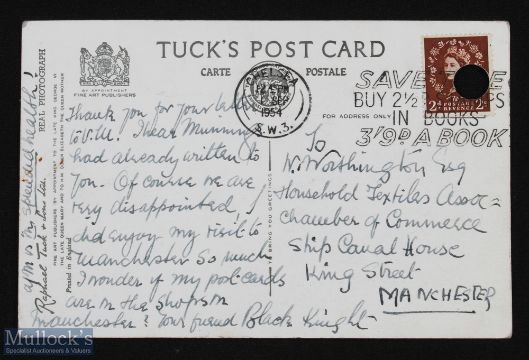 TUCK'S POST CARD
CARTE POSTALE
BY APPOINTMENT
FINE ART PUBLISHERS
FOR ADDRESS ONLY
CHELSEA
SEP
1954
S.W.3.
SAVE
BUY 2½
IN BOOKS
3/9D. A BOOK
2D POSTAGE REVENUE 2D
REAL PHOTOGRAPH
Raphael Tuck & Sons Ltd.
Printed in England
Thank you for your letter
to V.M. I hear Munnings
had already written to
you. Of course we are
very disappointed, I
did enjoy my visit to
Manchester so much
I wonder if my post cards
are in the shops in
Manchester? Your friend Black Knight
in splendid health!
To
W. Worthington Esq
Household Textiles Assoc=
Chamber of Commerce
Ship Canal House
King Street
MANCHESTER
Mullock's
Specialist Auctioneers & Valuers